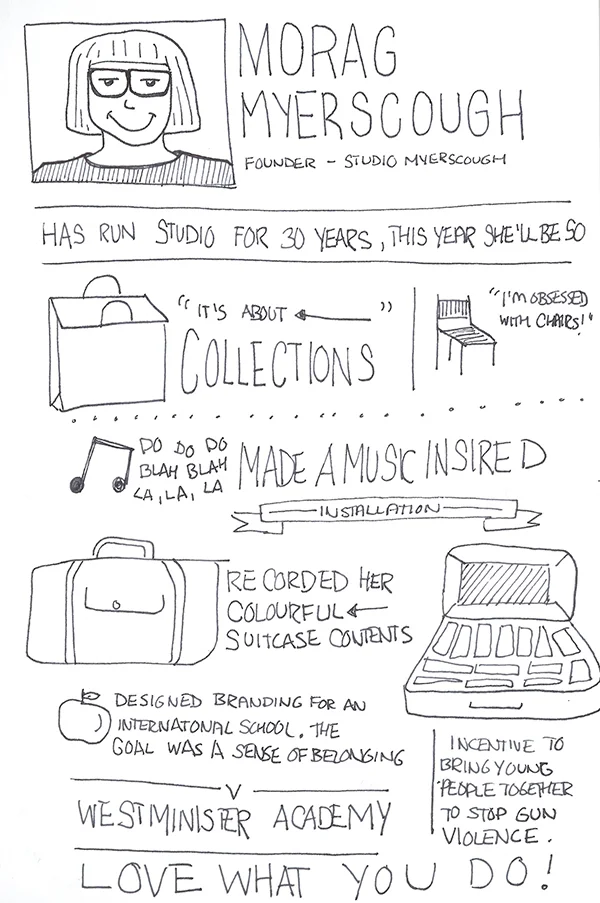 MORAG
MYERSCOUGH
FOUNDER - STUDIO MYERSCOUGH
HAS RUN STUDIO FOR 30 YEARS, THIS YEAR SHE'LL BE 50
"IT'S ABOUT "
COLLECTIONS
"I'M OBSESSED
WITH CHAIRS!"
DO DO DO
BLAH BLAH
LA, LA, LA
MADE A MUSIC INSIRED
INSTALLATION
RECORDED HER
COLOURFUL
SUITCASE CONTENTS
DESIGNED BRANDING FOR AN
INTERNATONAL SCHOOL. THE
GOAL WAS A SENSE OF BELONGING
WESTMINISTER ACADEMY
INCENTIVE TO
BRING YOUNG
PEOPLE TOGETHER
TO STOP GUN
VIOLENCE.
LOVE WHAT YOU DO!